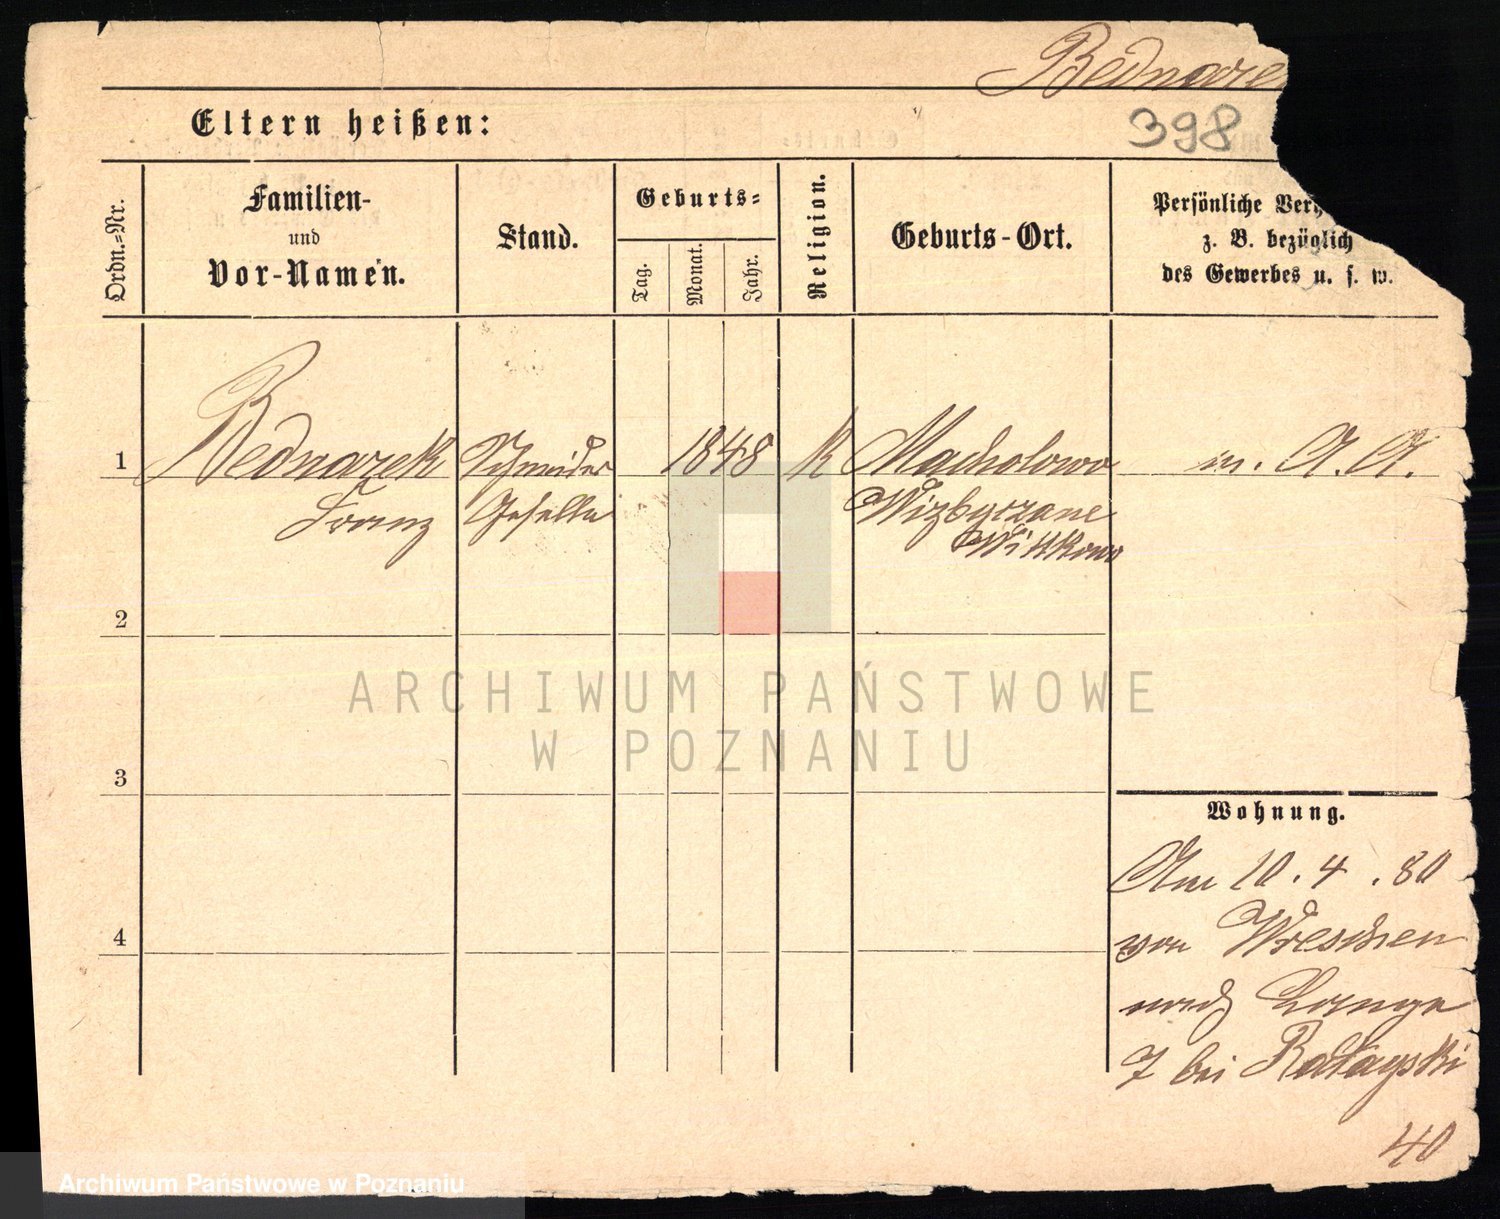 Bednare
Eltern heißen:
398
Ordn.-Nr.
Familien-
und
Vor-Namen.
Stand.
Geburts-
Tag.
Monat.
Jahr.
Religion.
Geburts-Ort.
Persönliche Ver
z. B. bezüglich
des Gewerbes u. s. w.
1
Bednarek
Franz
Schneider
Geselle
1848
K
Wittkowo
m. A. A.
2
3
4
Wohnung.
Am 10.4.80
von Wreschen
nach Lange
7 bei
40
ARCHIWUM PAŃSTWOWE
W POZNANIU
Archiwum Państwowe w Poznaniu